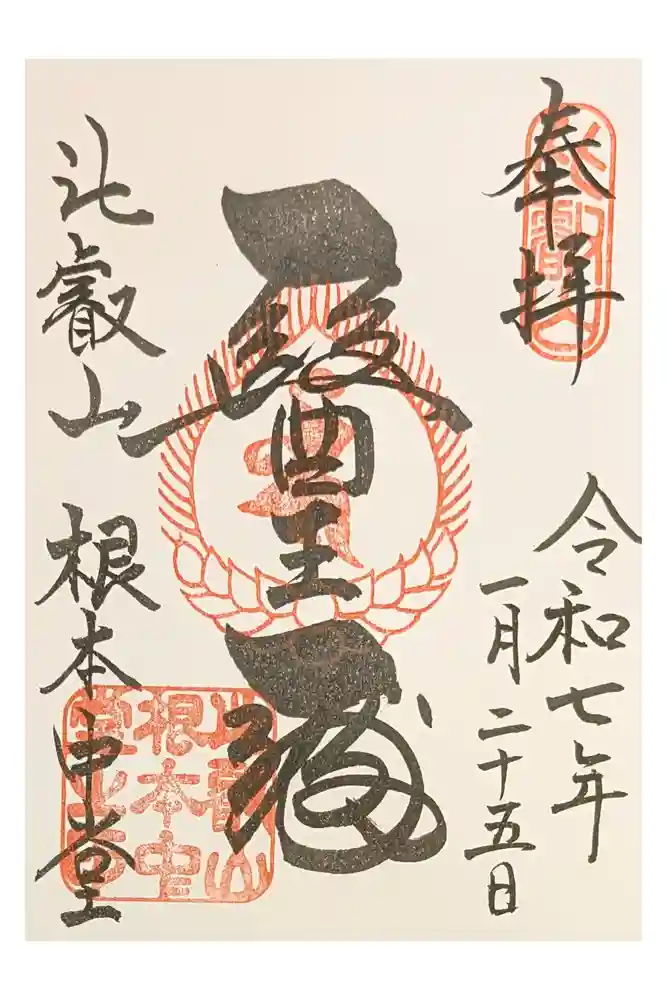 奉拝
比叡山
令和七年
一月二十五日
醫王殿
比叡山 根本中堂
比叡山
根本中
堂之印